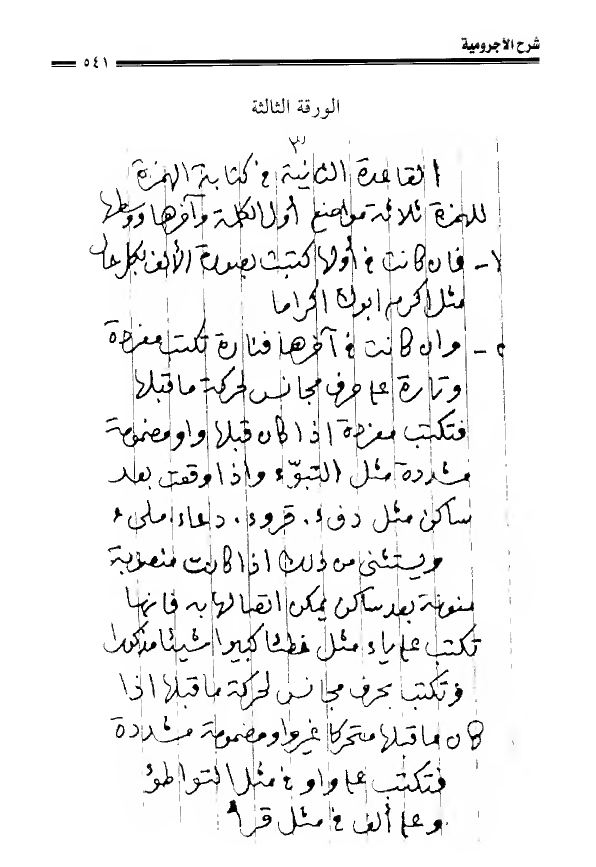 شرح الآجرومية
٥٤١
الورقة الثالثة
٣
القاعدة الثانية في كتابة الهمزة
للهمزة ثلاثة مواضع أول الكلمة وآخرها ووسطها
١- فإن كانت في أولها كتبت بصورة الألف بكل حال
مثل اكرم ابوك اكراما
٢- وان كانت في آخرها فتارة تكتب مفردة
وتارة على حرف مجانس لحركة ما قبلها
فتكتب مفردة اذا كان قبلها واو مضمومة
مشددة مثل التبوّء واذا وقعت بعد
ساكن مثل دفء. قروء. دعاء. ملىء
ويستثنى من ذلك اذا كانت منصوبة
منونة بعد ساكن يمكن اتصالها به فانها
تكتب على ياء مثل خطئا كبيرا شيئا مذكورا
وتكتب بحرف مجانس لحركة ما قبلها اذا
كان ما قبلها متحركا غير واو مضمومة مشددة
فتكتب على واو في مثل التواطؤ
وعلى ألف في مثل قرأ